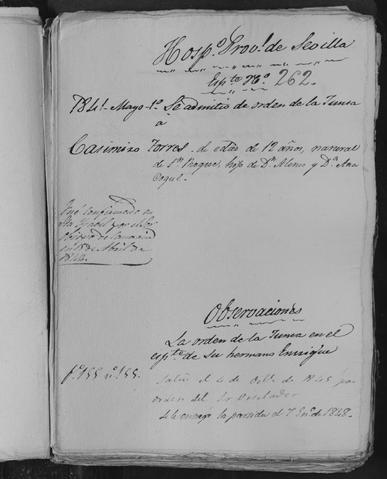 Hosp.º Prov.l de Sevilla
Esp.te N.º 262.
1841. Mayo 1.º Se admitio de orden de la Junta
a
Casimiro Torres de edad de 12 años, natural
de S.n Roque, hijo de D.n Alonso y D.ª Ana
Coque
Fue confirmado en
de
Abril de
1844.
Observaciones
La orden de la Junta en el
esp.te de su hermano Enrique
f.º 155 n.º 155.
Salió el 4 de Oct.e de 1845 por
orden del Sr Visitador
la partida el 7 En.º de 1848.